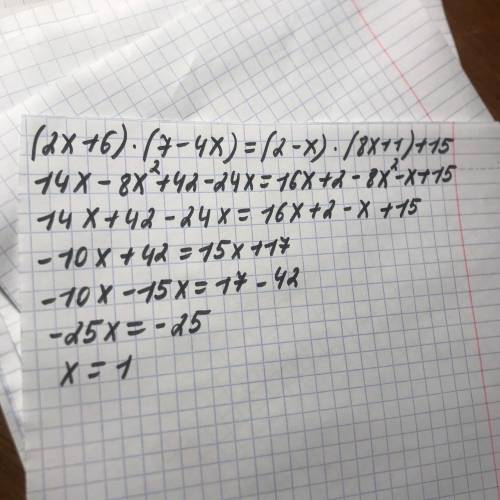 (2x+6)·(7-4x)=(2-x)·(8x+1)+15
14x-8x²+42-24x=16x+2-8x²-x+15
14x+42-24x=16x+2-x+15
-10x+42=15x+17
-10x-15x=17-42
-25x=-25
x=1